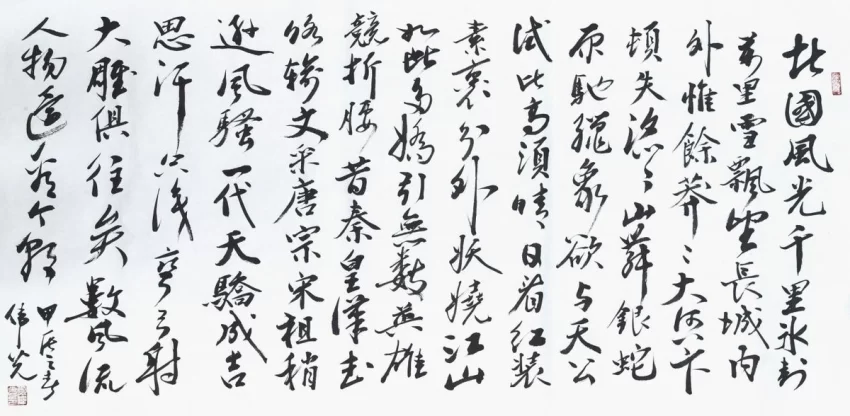 北國風光千里冰封
萬里雪飄望長城内
外惟餘莽〻大河上下
頓失滔〻山舞銀蛇
原馳臘象欲与天公
試比高須晴日看红装
素裹分外妖嬈江山
如此多嬌引無數英雄
競折腰昔秦皇漢武
略輸文采唐宗宋祖稍
遜風騷一代天驕成吉
思汗只識彎弓射
大雕俱往矣數風流
人物還看今朝
甲辰之春
伟光